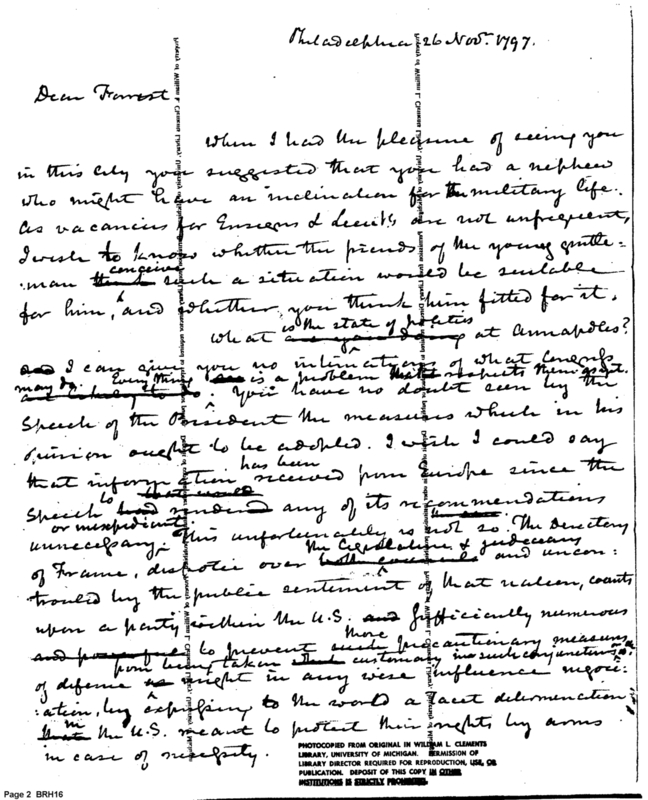 Philadelphia 26 Novr. 1797.
Dear Forrest
When I had the pleasure of seeing you
in this city you suggested that you had a nephew
who might have an inclination for the military life.
As vacancies for Ensigns & Lieuts are not unfrequent,
I wish to know whether the friends of the young gentle=
conceive
:man think such a situation would be suitable
for him, and whether you think him fitted for it.
is the state of politics
What are you doing at Annapolis?
and I can give you no intimations of what Congress
may do. Every thing is a problem that respects them as yet.
You have no doubt seen by the
Speech of the President the measures which in his
opinion ought to be adopted. I wish I could say
has been
that information received from Europe since the
to
Speech had rendered any of its recommendations
or inexpedient
unnecessary. This unfortunately is not so. The Directory
the Legislature & judiciary
of France, despotic over both councils and uncon:
trouled by the public sentiment of that nation, counts
upon a party within the U.S. and sufficiently numerous
more
and powerful to prevent such precautionary measures
from being taken customary in such conjunctures
of defense as might in any wise influence negoci:
:ation, by expressing to the world a tacit determination
in
that the U.S. meant to protect their rights by arms
in case of necessity.
PHOTOCOPIED FROM ORIGINAL IN WILLIAM L. CLEMENTS
LIBRARY, UNIVERSITY OF MICHIGAN. PERMISSION OF
LIBRARY DIRECTOR REQUIRED FOR REPRODUCTION, USE, OR
PUBLICATION. DEPOSIT OF THIS COPY IN OTHER
INSTITUTIONS IS STRICTLY PROHIBITED.
Page 2 BRH16